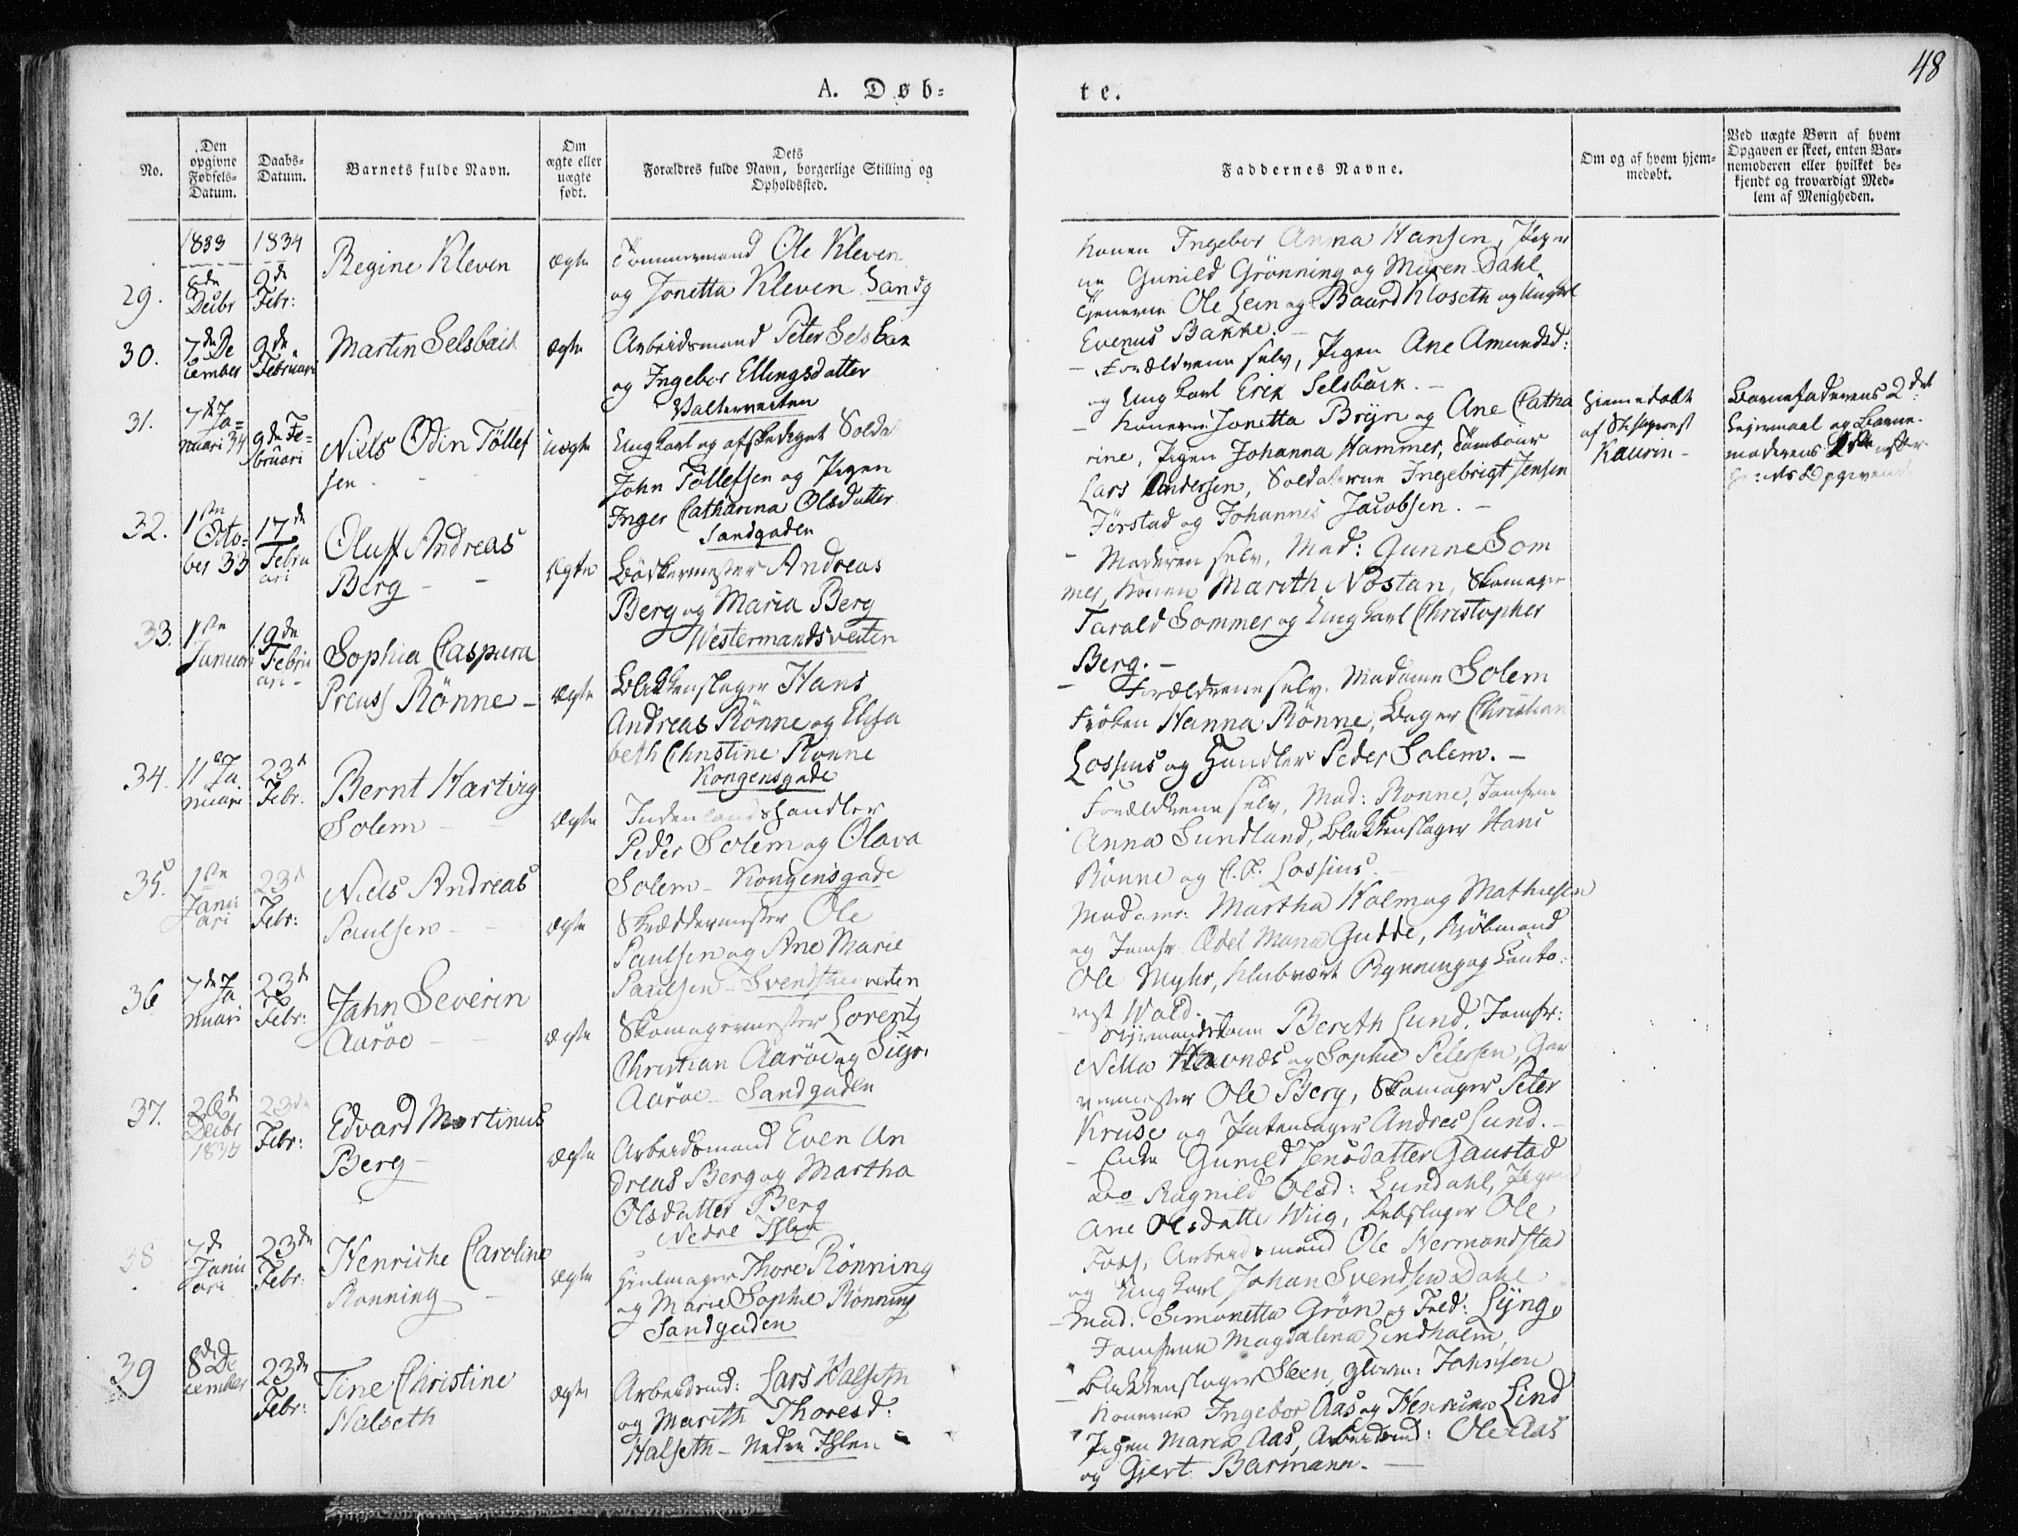 48
A. Døb=
te.
No.
Den opgivne Fødsels-Datum.
Daabs-Datum.
Barnets fulde Navn.
Om ægte eller uægte født.
Dets Forældres fulde Navn, borgerlige Stilling og Opholdssted.
Faddernes Navne.
Om og af hvem hjemmedøbt.
Ved uægte Børn af hvem Opgaven er skeet, enten Barnemoderen eller hvilket bekjendt og troværdigt Medlem af Menigheden.
1833
1834
29.
Decbr
9de
Febr:
Regine Kleven
ægte
Tømmermand Ole Kleven
og Jonetta Kleven Sandg
Konen Ingebor Anna Hansen, Piger
ne Gunild Grönning og Maren Dahl
Tjenerne Ole Lein og Baard Kloseth og Ungkarl
Evenus Bakke. –
30.
7de De
cember
9de
Februari
Martin Selsbach
ægte
Arbeidsmand Peter Selsbak
og Ingebor Ellingsdatter
– Forældrene selv, Pigen Ane Amundsd:
og Ungkarl Erik Selsback. –
31.
7de Ja=
nuari 34
9de Fe=
bruari
Niels Odin Töllef
sen
uægte
Ungkarl og afskediget Soldat
John Töllefsen og Pigen
Inger Catharina Olsdatter
Sandgaden
– Konerne Jonetta Bryn og Ane Catha
rine, Pigen Johanna Hammer, Tambour
Lars Andersen, Soldaterne Ingebrigt Jensen
Förstad og Johannes Jacobsen. –
Hiemmedøbt
af
Kaurin –
Barnefaderens 2det
Leiermaal og Barne-
moderens
32.
1ste
Octo=
ber 33
17de
Febru
ari
Oluff Andreas
Berg –
Ægte
Bödkermester Andreas
Berg og Maria Berg
Westermandsveiten
– Moderen selv, Mad: Gunne Som
mer, Konen Marith Nostan, Skomager
Tarald Sommer og Ungkarl Christopher
Berg. –
33.
1ste
Januari
19de
Febru
ari –
Sophia Caspara
Preuss Rönne –
Ægte
Blikkenslager Hans
Andreas Rönne og Elisa
beth Christine Rönne
Kongensgade
– Forældrene selv, Madame Solem
Fröken Hanna Rönne, Bager Christian
Lossius og Handler Peder Solem. –
34.
11te Ja
nuari
23de
Febr.
Bernt Hartvig
Solem –
Ægte
Indenlandshandler
Peder Solem og Olava
Solem – Kongensgade
Forældrene selv, Mad: Rønne, Jomfrue
Anna Sundland, Blikkenslager Hans
Rönne og C. P. Lossius. –
35.
1ste
Janu
ari
23de
Febr:
Niels Andreas
Paulsen –
ægte
Skræddermester Ole
Paulsen og Ane Marie
Paulsen –
Madamer: Martha Holm og Mathiesen
og Jomfr Edel Maria Gudde, Kjöbmand
Ole Myhr, Klubvært Rynning og Conto=
rist Wold. –
36
7de Ja
nuari
23de
Febr:
Jahn Severin
Aaröe –
ægte
Skomagermester Lorentz
Christian Aaröe og
Aaröe – Sandgaden
Bereth Lund, Jomfr:
Havnæs og Sophie Petersen, Gar
vermester Ole Berg, Skomager Peter
Kruse og Andres Lund. –
37.
26de
Decbr
1833
23de
Febr:
Edvard Martinus
Berg –
Ægte
Arbeidsmand Even An
dreas Berg og Martha
Olsdatter Berg
Nedre Ihlen
– Enke Gunild Jensdatter Gaustad
Do Ragnild Olsd: Lundahl, Pigen
Ane Olsdatter Wiig, Rebslager Ole
Foss, Arbeidsmand Ole Hermandstad
og Ungkarl Johan Svendsen Dahl
38
7de
Janu
ari
23de
Febr:
Henriche Caroline
Rönning –
ægte
Hiulmager Thore Rönning
og Marie Sophie Rönning
Sandgaden
– Mad: Simonetta Grön og Fred: Lyng,
Jomfrue Magdalina Lindholm,
Blikkenslager Steen, Johnsen
39
8de De
cember
23de
Febr:
Tine Christine
Halseth
ægte
Arbeidsmd: Lars Halseth
og Marith Thoresd:
Halseth – Nedre Ihlen –
Konerne Ingebor Aas og Henricke Lind
Pigen Maria Aas, Arbeidsmd: Ole Aas
og Gjert Barmann. –